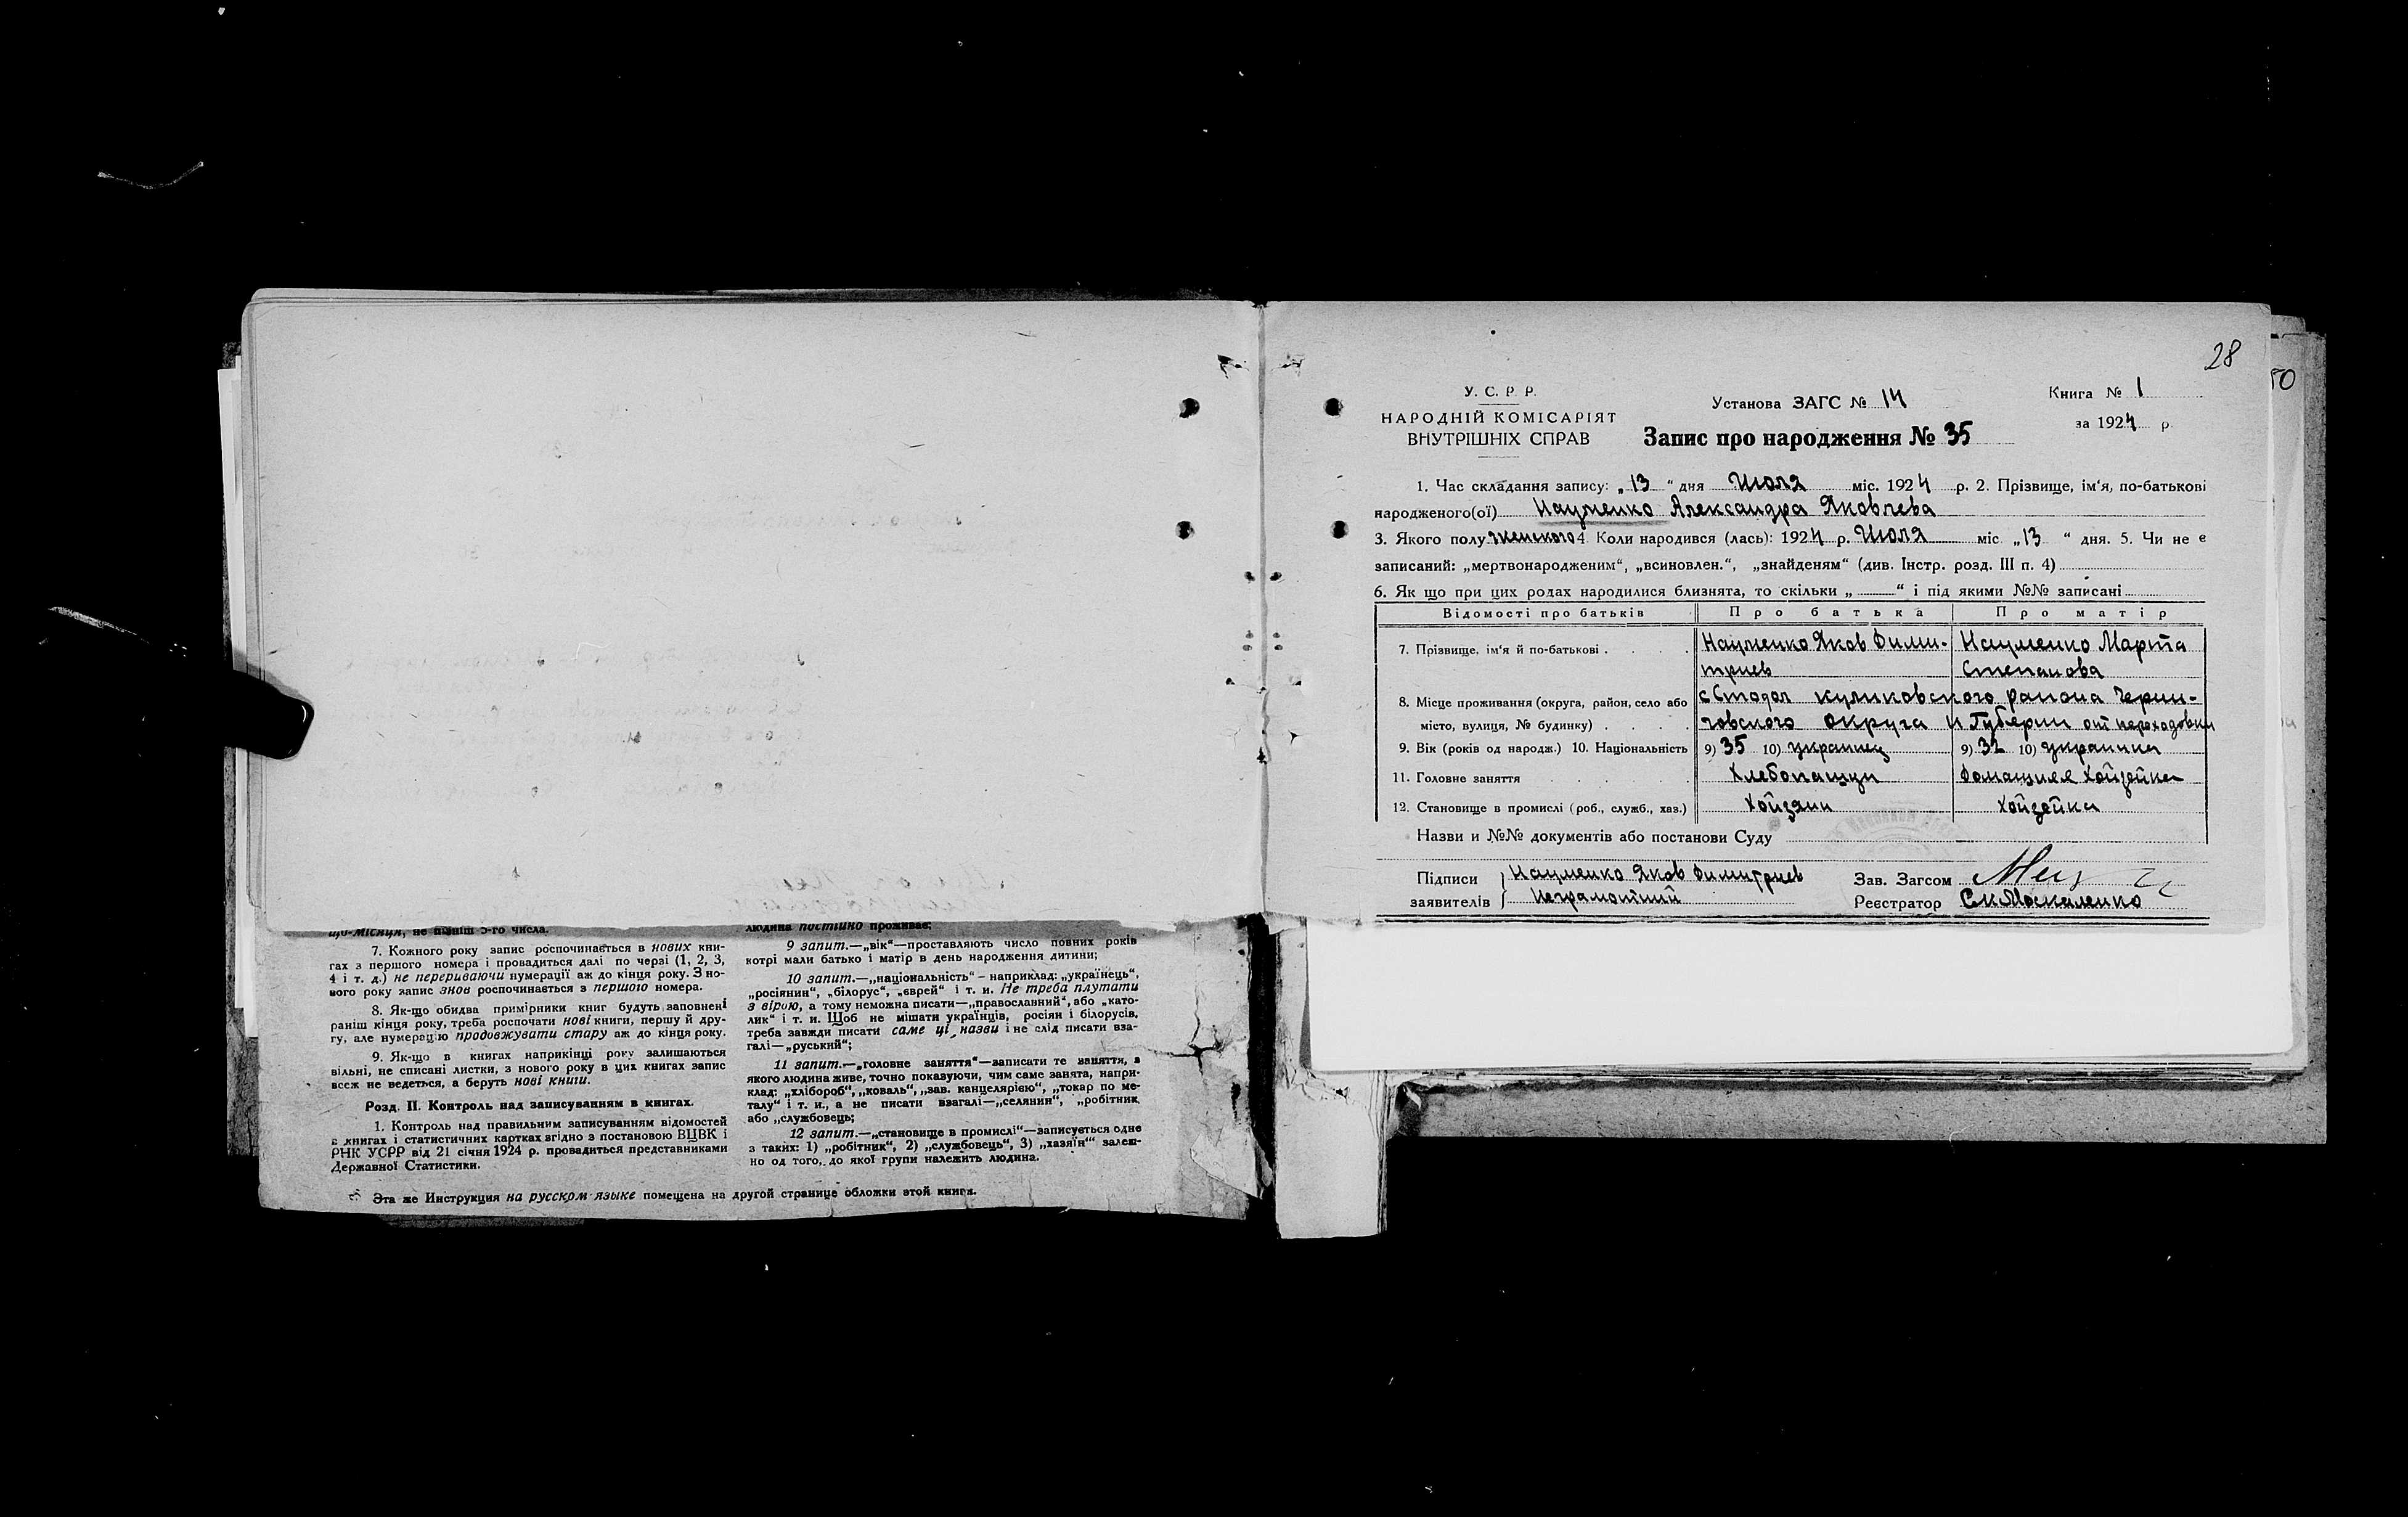 що-місяця, не пізніш 5-го числа.
7. Кожного року запис роспочинається в нових кни-
гах з першого номера і провадиться далі по черзі (1, 2, 3,
4 і т. д.) не перериваючи нумерації аж до кінця року. З но-
вого року запис знов роспочинається з першого номера.
8. Як-що обидва примірники книг будуть заповнені
раніш кінця року, треба роспочати нові книги, першу й дру-
гу, але нумерацію продовжувати стару аж до кінця року.
9. Як-що в книгах наприкінці року залишаються
вільні, не списані листки, з нового року в цих книгах запис
всеж не ведеться, а беруть нові книги.
Розд. II. Контроль над записуванням в книгах.
1. Контроль над правильним записуванням відомостей
в книгах і статистичних картках згідно з постановою ВЦВК і
РНК УСРР від 21 січня 1924 р. провадиться представниками
Державної Статистики.
людина постійно проживає;
9 запит.—„вік“—проставляють число повних років
котрі мали батько і матір в день народження дитини;
10 запит.—„національність“ – наприклад: „українець“,
„росіянин“, „білорус“, „єврей“ і т. и. Не треба плутати
з вірою, а тому неможна писати—„православний“, або „като-
лик“ і т. и. Щоб не мішати українців, росіян і білорусів,
треба завжди писати саме ці назви і не слід писати вза-
галі—„руський“;
11 запит.—„головне заняття“—записати те заняття, з
якого людина живе, точно показуючи, чим саме занята, напри-
клад: „хлібороб“, „коваль“, „зав. канцелярією“, „токар по ме-
талу“ і т. и., а не писати взагалі—„селянин“, „робітник
або „службовець;
12 запит.—„становище в промислі“—записується одне
з таких: 1) „робітник“, 2) „службовець“, 3) „хазяїн“ залеж-
но од того, до якої групи належить людина.
Эта же Инструкция на русском языке помещена на другой странице обложки этой книги.
28
50
У. С. Р. Р.
НАРОДНІЙ КОМІСАРІЯТ
ВНУТРІШНІХ СПРАВ
Установа ЗАГС № 14
Запис про народження № 35
Книга № 1
за 1924 р.
1. Час складання запису: „13“ дня Июля міс. 1924 р. 2. Прізвище, ім‘я, по-батькові
народженого(ої) Науменко Александра Яковлева
3. Якого полу женского 4. Коли народився (лась): 1924 р. Июля міс. „13“ дня. 5. Чи не є
записаний: „мертвонародженим“, „всиновлен.“, „знайденям“ (див. Інстр. розд. III п. 4)
6. Як що при цих родах народилися близнята, то скільки „ “ і під якими №№ записані
Відомості про батьків Про батька Про матір
7. Прізвище, ім‘я й по-батькові Науменко Яков Дими- Науменко Марта
триев Степанова
8. Місце проживання (округа, район, село або с Стодол куликовского района Черни-
місто, вулиця, № будинку) говского округа и Губернии
9. Вік (років од народж.) 10. Національність 9) 35 10) украинец 9) 32 10) украинка
11. Головне заняття Хлебопащци Домашняя хойзейка
12. Становище в промислі (роб., служб., хаз.) Хойзяин Хойзейка
Назви и №№ документів або постанови Суду
Підписи Науменко Яков Димитриев
заявителів Неграмотний
Зав. Загсом
Реєстратор Ск Москаленко